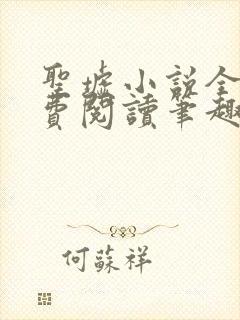 聖墟小說全
費閱讀筆趣
何蘇祥